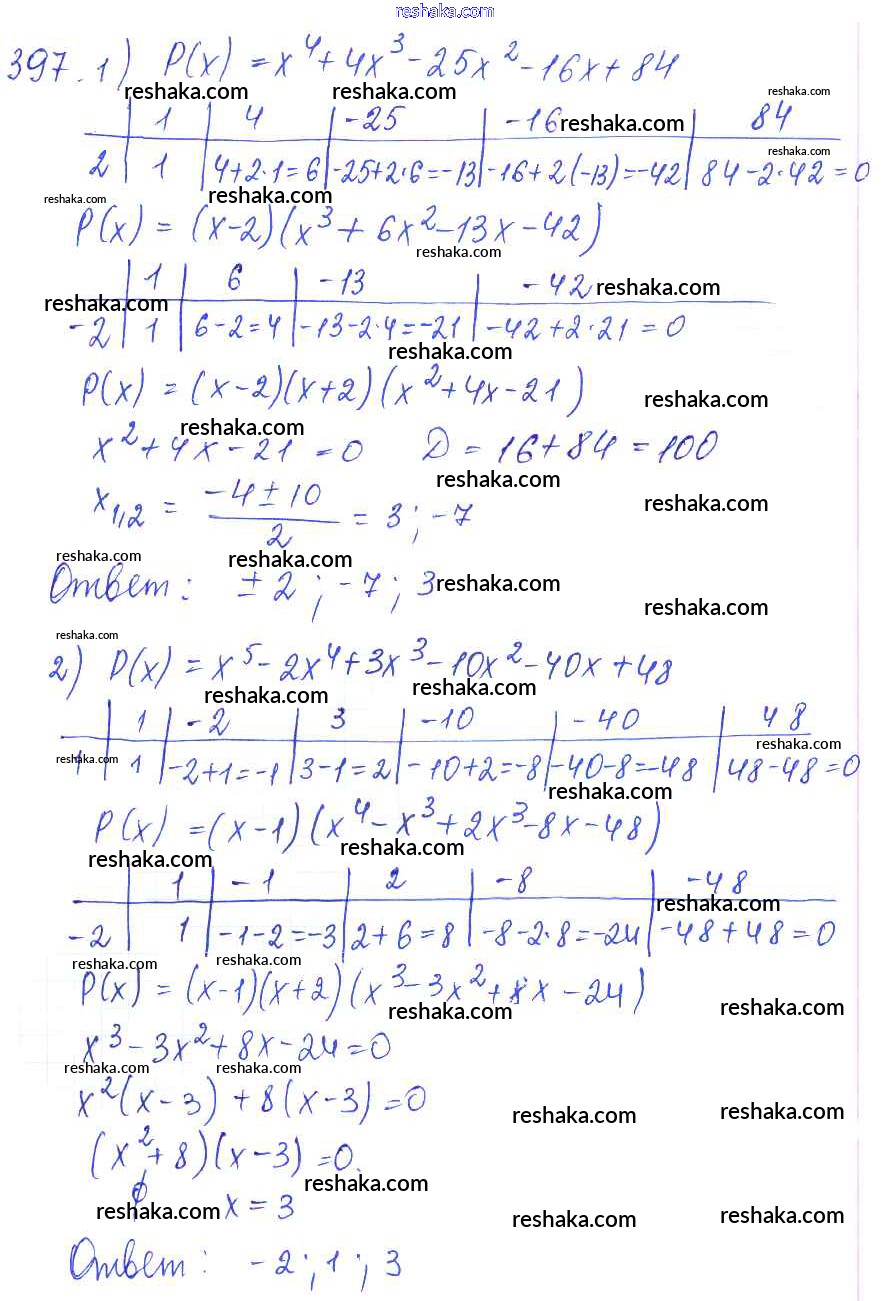 reshaka.com
397. 1) P(x) = x⁴ + 4x³ - 25x² - 16x + 84
reshaka.com reshaka.com reshaka.com
1 | 4 | -25 | -16 reshaka.com | 84
reshaka.com
2 | 1 | 4+2·1=6 | -25+2·6=-13 | -16+2(-13)=-42 | 84-2·42=0
reshaka.com reshaka.com
P(x) = (x-2)(x³ + 6x² - 13x - 42)
reshaka.com
1 | 6 | -13 | -42 reshaka.com
reshaka.com
-2 | 1 | 6-2=4 | -13-2·4=-21 | -42+2·21=0
reshaka.com
P(x) = (x-2)(x+2)(x²+4x-21)
reshaka.com
reshaka.com
x²+4x-21=0 D=16+84=100
reshaka.com
x₁,₂ = (-4±10)/2 = 3; -7
reshaka.com
reshaka.com reshaka.com
Ответ: ±2; -7; 3 reshaka.com
reshaka.com
reshaka.com
2) P(x) = x⁵ - 2x⁴ + 3x³ - 10x² - 40x + 48
reshaka.com reshaka.com
1 | -2 | 3 | -10 | -40 | 48
reshaka.com
reshaka.com
1 | 1 | -2+1=-1 | 3-1=2 | -10+2=-8 | -40-8=-48 | 48-48=0
reshaka.com
P(x) = (x-1)(x⁴ - x³ + 2x³ - 8x - 48)
reshaka.com reshaka.com
1 | -1 | 2 | -8 | -48
reshaka.com
-2 | 1 | -1-2=-3 | 2+6=8 | -8-2·8=-24 | -48+48=0
reshaka.com reshaka.com
P(x) = (x-1)(x+2)(x³ - 3x² + 8x - 24)
reshaka.com reshaka.com
x³ - 3x² + 8x - 24 = 0
reshaka.com reshaka.com
x²(x-3) + 8(x-3) = 0
reshaka.com reshaka.com
(x²+8)(x-3) = 0
reshaka.com
∅ x = 3
reshaka.com reshaka.com reshaka.com
Ответ: -2; 1; 3